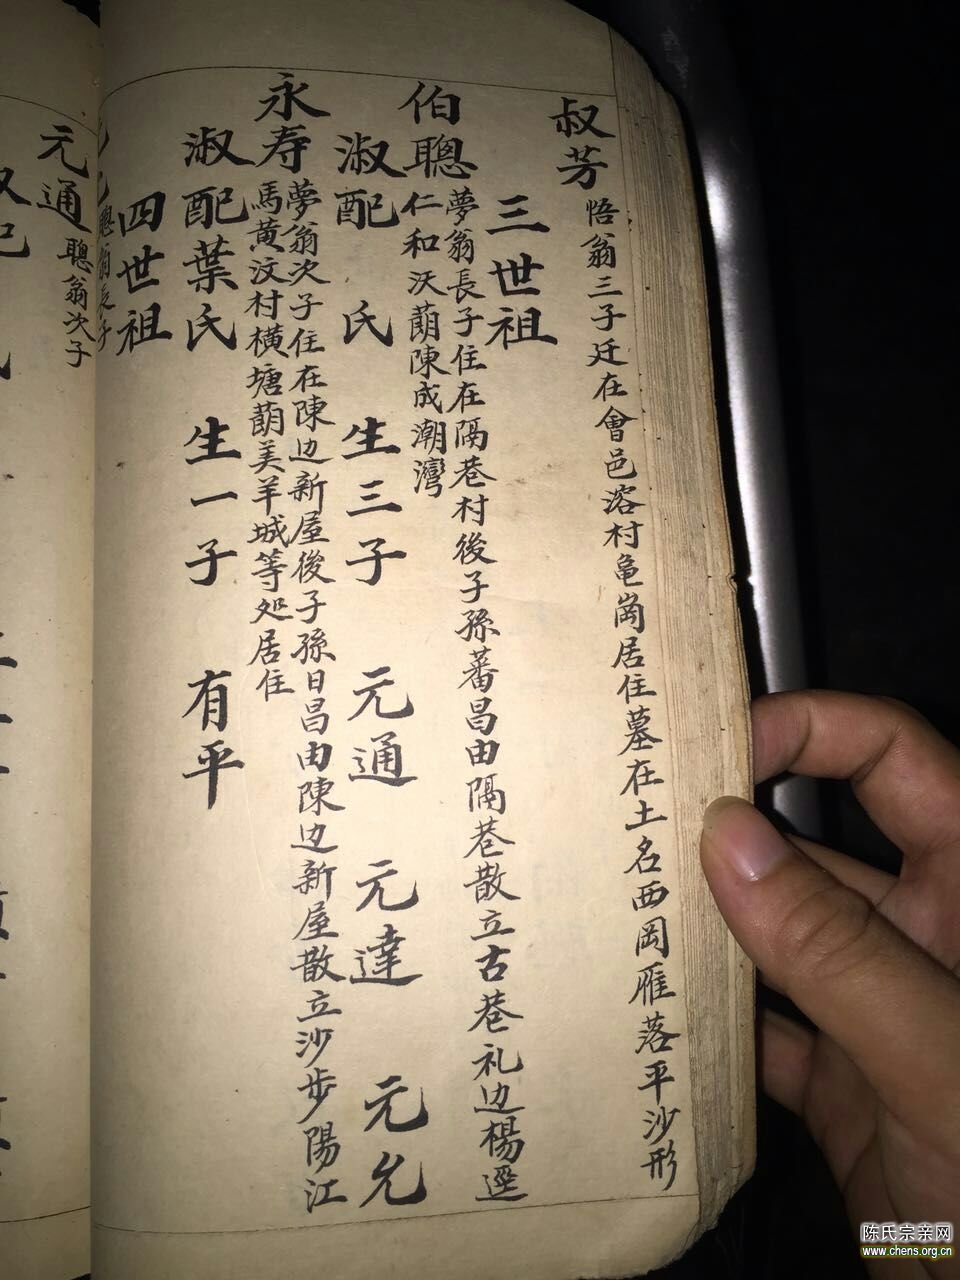 叔芳 悟翁三子迁在會邑溶村龟崗居住墓在土名西岡雁落平沙形
三世祖
伯聰 夢翁長子住在隔巷村後子孫蕃昌由隔巷散立古巷礼边楊
仁和沃蓢陳成潮灣
淑配 氏 生三子 元通 元達 元允
永寿 夢翁次子住在陳边新屋後子孫日昌由陳边新屋散立沙步陽江
馬黄汶村橫塘蓢美羊城等处居住
淑配葉氏 生一子 有平
四世祖
聰翁長子
元通 聰翁次子
陈氏宗亲网
www.chens.org.cn